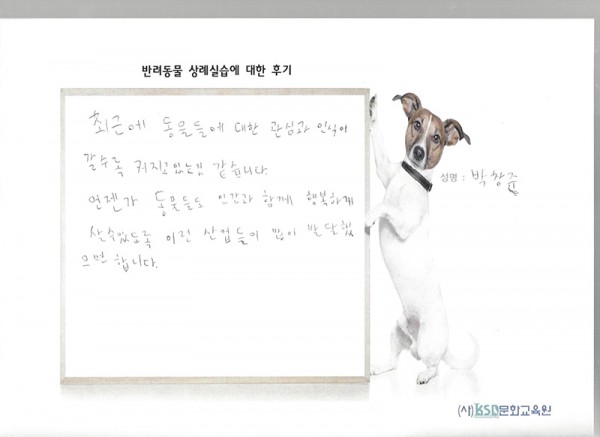 반려동물 상례실습에 대한 후기
최근에 동물들에 대한 관심과 인식이
갈수록 커지고있는것 같습니다.
언젠가 동물들도 인간과 함께 행복하게
살수있도록 이런 산업들이 많이 발달했
으면 합니다.
성명 : 박창준
(사)KSD문화교육원